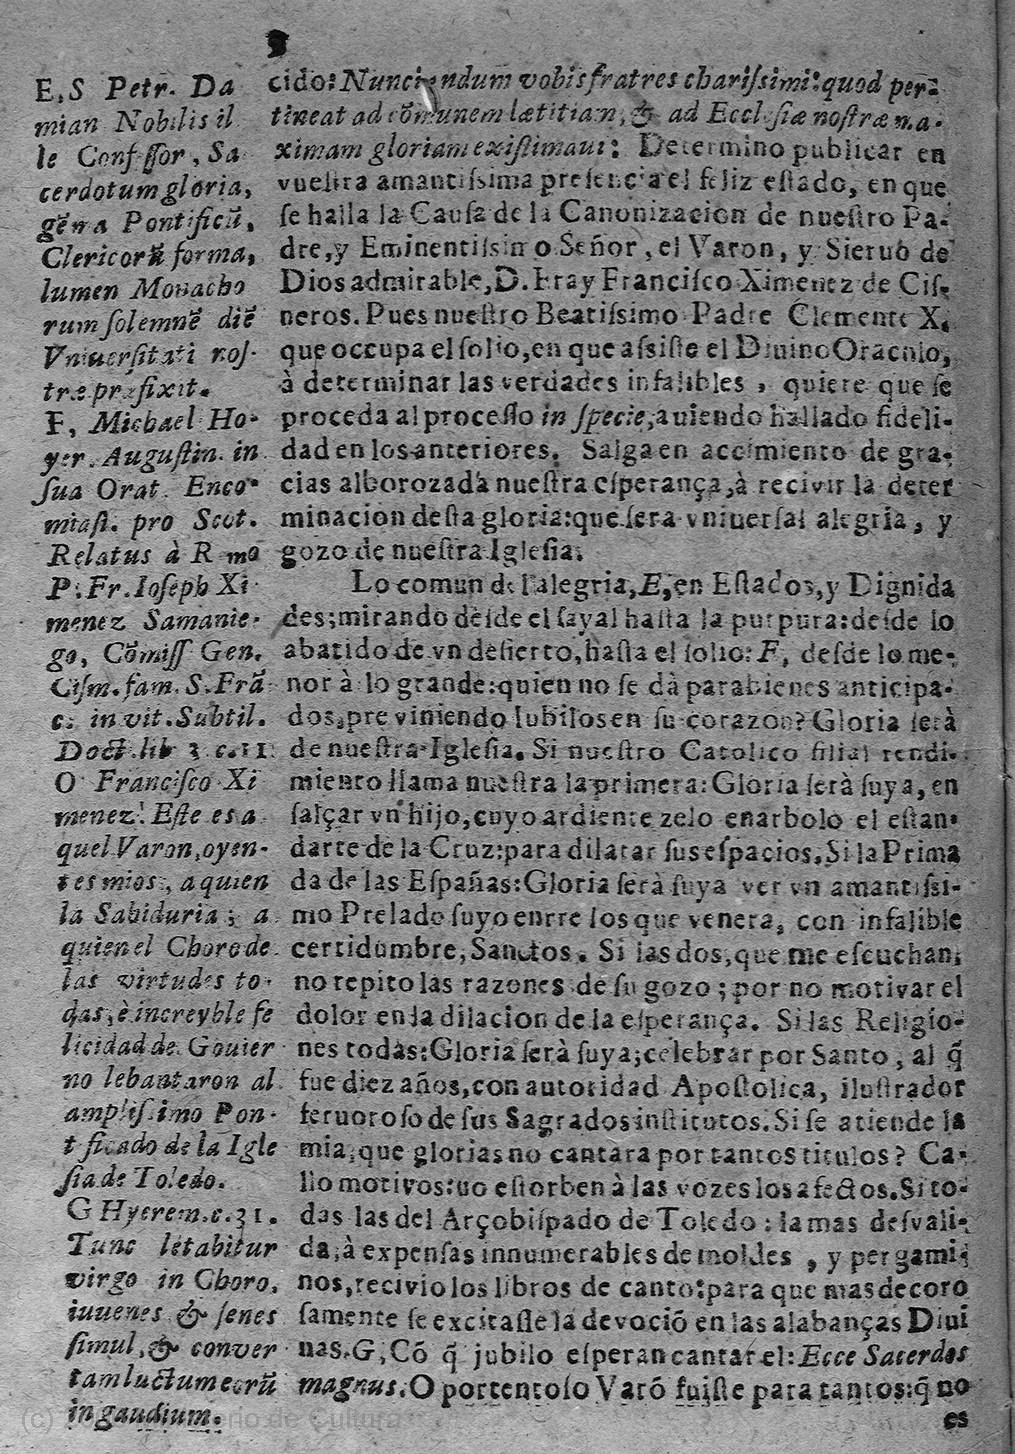 E, S Petr. Da
mian Nobilis il
le Confessor, Sa
cerdotum gloria,
gēma Pontificū,
Clericorū forma,
lumen Monacho
rum solemnē diē
Vniuersitati nos-
træ præfixit.
F, Michael Ho-
yer. Augustin. in
sua Orat. Enco-
miast. pro Scot.
Relatus à R mo
P. Fr. Ioseph Xi
menez Samanie-
go, Cōmiss Gen.
Cism. fam. S. Frā
c. in vit. Subtil.
Doct. lib 3 c. 11
O Francisco Xi
menez! Este es a
quel Varon, oyen-
tes mios, a quien
la Sabiduria; a
quien el Choro de
las virtudes to-
das, è increyble fe
licidad de Gouier
no lebantaron al
amplissimo Pon-
tificado de la Igle
sia de Toledo.
G Hyerem. c. 31.
Tunc letabitur
virgo in Choro,
iuuenes & senes
simul, & conver
tam luctum eorū
in gaudium.
cido: Nunciandum vobis fratres charissimi: quod per-
tineat ad cōmunem lætitiam, & ad Ecclesiæ nostræ ma-
ximam gloriam existimaui: Determino publicar en
vuestra amantissima presencia el feliz estado, en que
se halla la Causa de la Canonizacion de nuestro Pa-
dre, y Eminentissimo Señor, el Varon, y Sieruo de
Dios admirable, D. Fray Francisco Ximenez de Cis-
neros. Pues nuestro Beatissimo Padre Clemente X,
que occupa el solio, en que assiste el Diuino Oraculo,
à determinar las verdades infalibles, quiere que se
proceda al processo in specie, auiendo hallado fideli-
dad en los anteriores. Salga en accimiento de gra-
cias alborozada nuestra esperança, à recivir la deter
minacion desta gloria: que sera vniuersal alegria, y
gozo de nuestra Iglesia.
Lo comun de l'alegria, E, en Estados, y Dignida
des; mirando desde el sayal hasta la purpura: desde lo
abatido de vn desierto, hasta el solio: F, desde lo me-
nor à lo grande: quien no se dà parabienes anticipa-
dos, pre viniendo Iubilos en su corazon? Gloria serà
de nuestra Iglesia. Si nuestro Catolico filial rendi-
miento llama nuestra la primera: Gloria serà suya, en
salçar vn hijo, cuyo ardiente zelo enarbolo el estan-
darte de la Cruz: para dilatar sus espacios. Si la Prima
da de las Españas: Gloria serà suya ver vn amantissi-
mo Prelado suyo entre los que venera, con infalible
certidumbre, Sanctos. Si las dos, que me escuchan,
no repito las razones de su gozo; por no motivar el
dolor en la dilacion de la esperança. Si las Religio-
nes todas: Gloria serà suya; celebrar por Santo, al q̃
fue diez años, con autoridad Apostolica, ilustrador
feruoroso de sus Sagrados institutos. Si se atiende la
mia, que glorias no cantara por tantos titulos? Ca-
llo motivos: no estorben à las vozes los afectos. Si to-
das las del Arçobispado de Toledo: la mas desvali-
da, à expensas innumerables de moldes, y pergami-
nos, recivio los libros de canto: para que mas decoro
samente se excitasse la devociō en las alabanças Diui
nas. G, Cō q̃ jubilo esperan cantar el: Ecce Sacerdos
magnus. O portentoso Varō fuiste para tantos: q̃ no
es